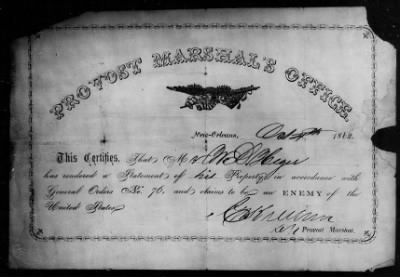 PROVOST MARSHAL'S OFFICE.
New-Orleans, 1862.
This Certifies, That M
has rendered a Statement of his Property, in accordance with
General Orders No. 76, and claims to be an ENEMY of the
United States.
Provost Marshal.